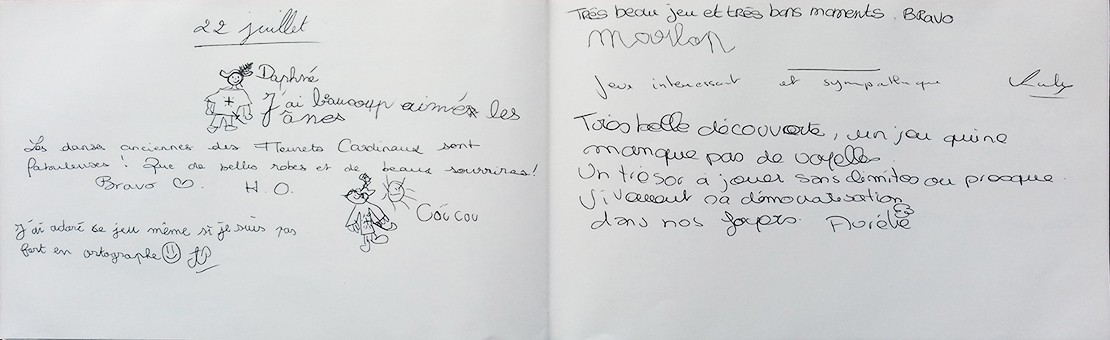 22 juillet
Daphné
J'ai baucoup aimée les
ânes
Les danses anciennes des Fleurets Cardinaux sont
fabuleuses ! Que de belles robes et de beaux sourires !
Bravo ♡. H.O.
Coucou
J'ai adoré se jeu même si je suis pas
fort en ortographe
Très beau jeu et très bons moments. Bravo
Marlon
Jeu interessant et sympathique
Très belle découverte, un jeu qui ne
manque pas de voyelles.
Un trésor à jouer sans limites ou presque.
Vivement sa démocratisation
dans nos foyers. Aurélie